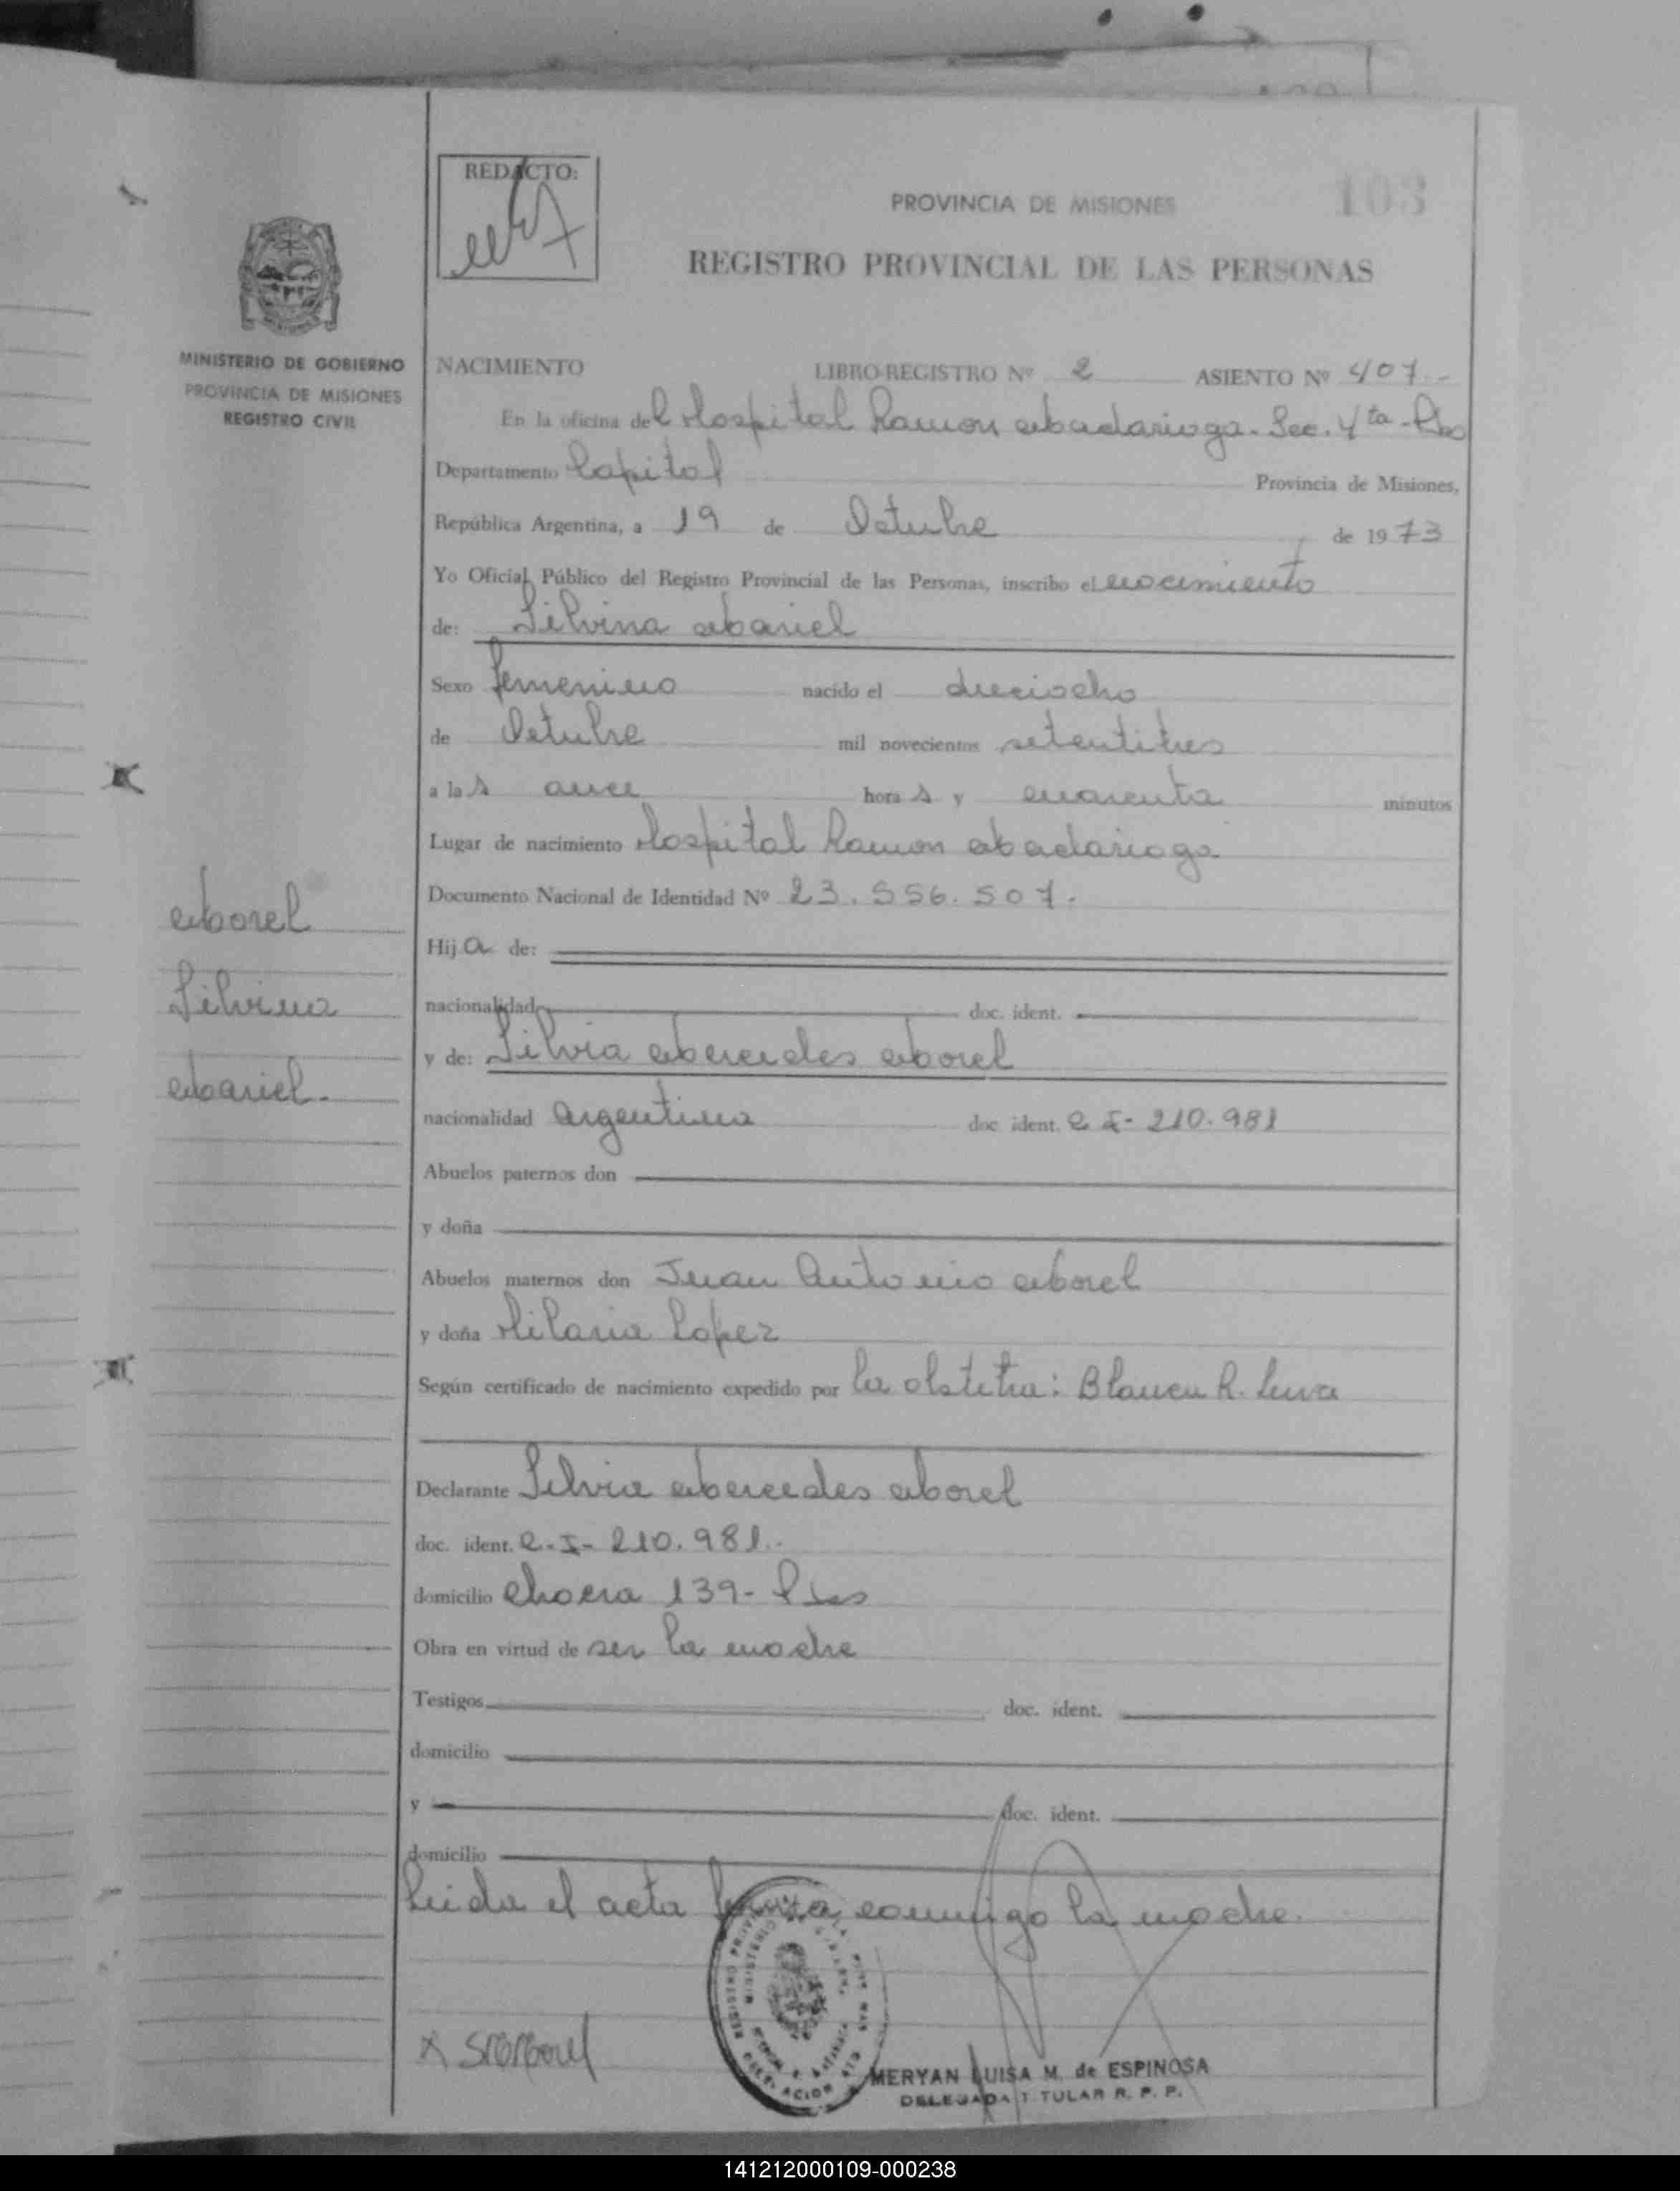 103
REDACTO:
PROVINCIA DE MISIONES
REGISTRO PROVINCIAL DE LAS PERSONAS
MINISTERIO DE GOBIERNO
PROVINCIA DE MISIONES
REGISTRO CIVIL
NACIMIENTO LIBRO-REGISTRO Nº 2 ASIENTO Nº 407-
En la oficina del Hospital Ramon Madariaga. Sec. 4ta
Departamento Capital Provincia de Misiones,
República Argentina, a 19 de Octubre de 1973
Yo Oficial Público del Registro Provincial de las Personas, inscribo el nacimiento
de: Silvina Mariel
Sexo femenino nacido el dieciocho
de Octubre mil novecientos setentitres
a las once horas y cuarenta minutos
Lugar de nacimiento Hospital Ramon Madariaga
Documento Nacional de Identidad Nº 23.556.507.
Morel
Hija de:
Silvina
nacionalidad doc. ident.
y de: Silvia Mercedes Morel
Mariel.
nacionalidad Argentina doc ident. C I- 210.981
Abuelos paternos don
y doña
Abuelos maternos don Juan Antonio Morel
y doña Hilaria Lopez
Según certificado de nacimiento expedido por la obstetra: Blanca R. Leiva
Declarante Silvia Mercedes Morel
doc. ident. C-I- 210.981.
domicilio Chacra 139- Pdas
Obra en virtud de ser la madre
Testigos doc. ident.
domicilio
y doc. ident.
domicilio
Leida el acta firma conmigo la madre.
MERYAN LUISA M. de ESPINOSA
DELEGADA TITULAR R. P. P.
141212000109-000238